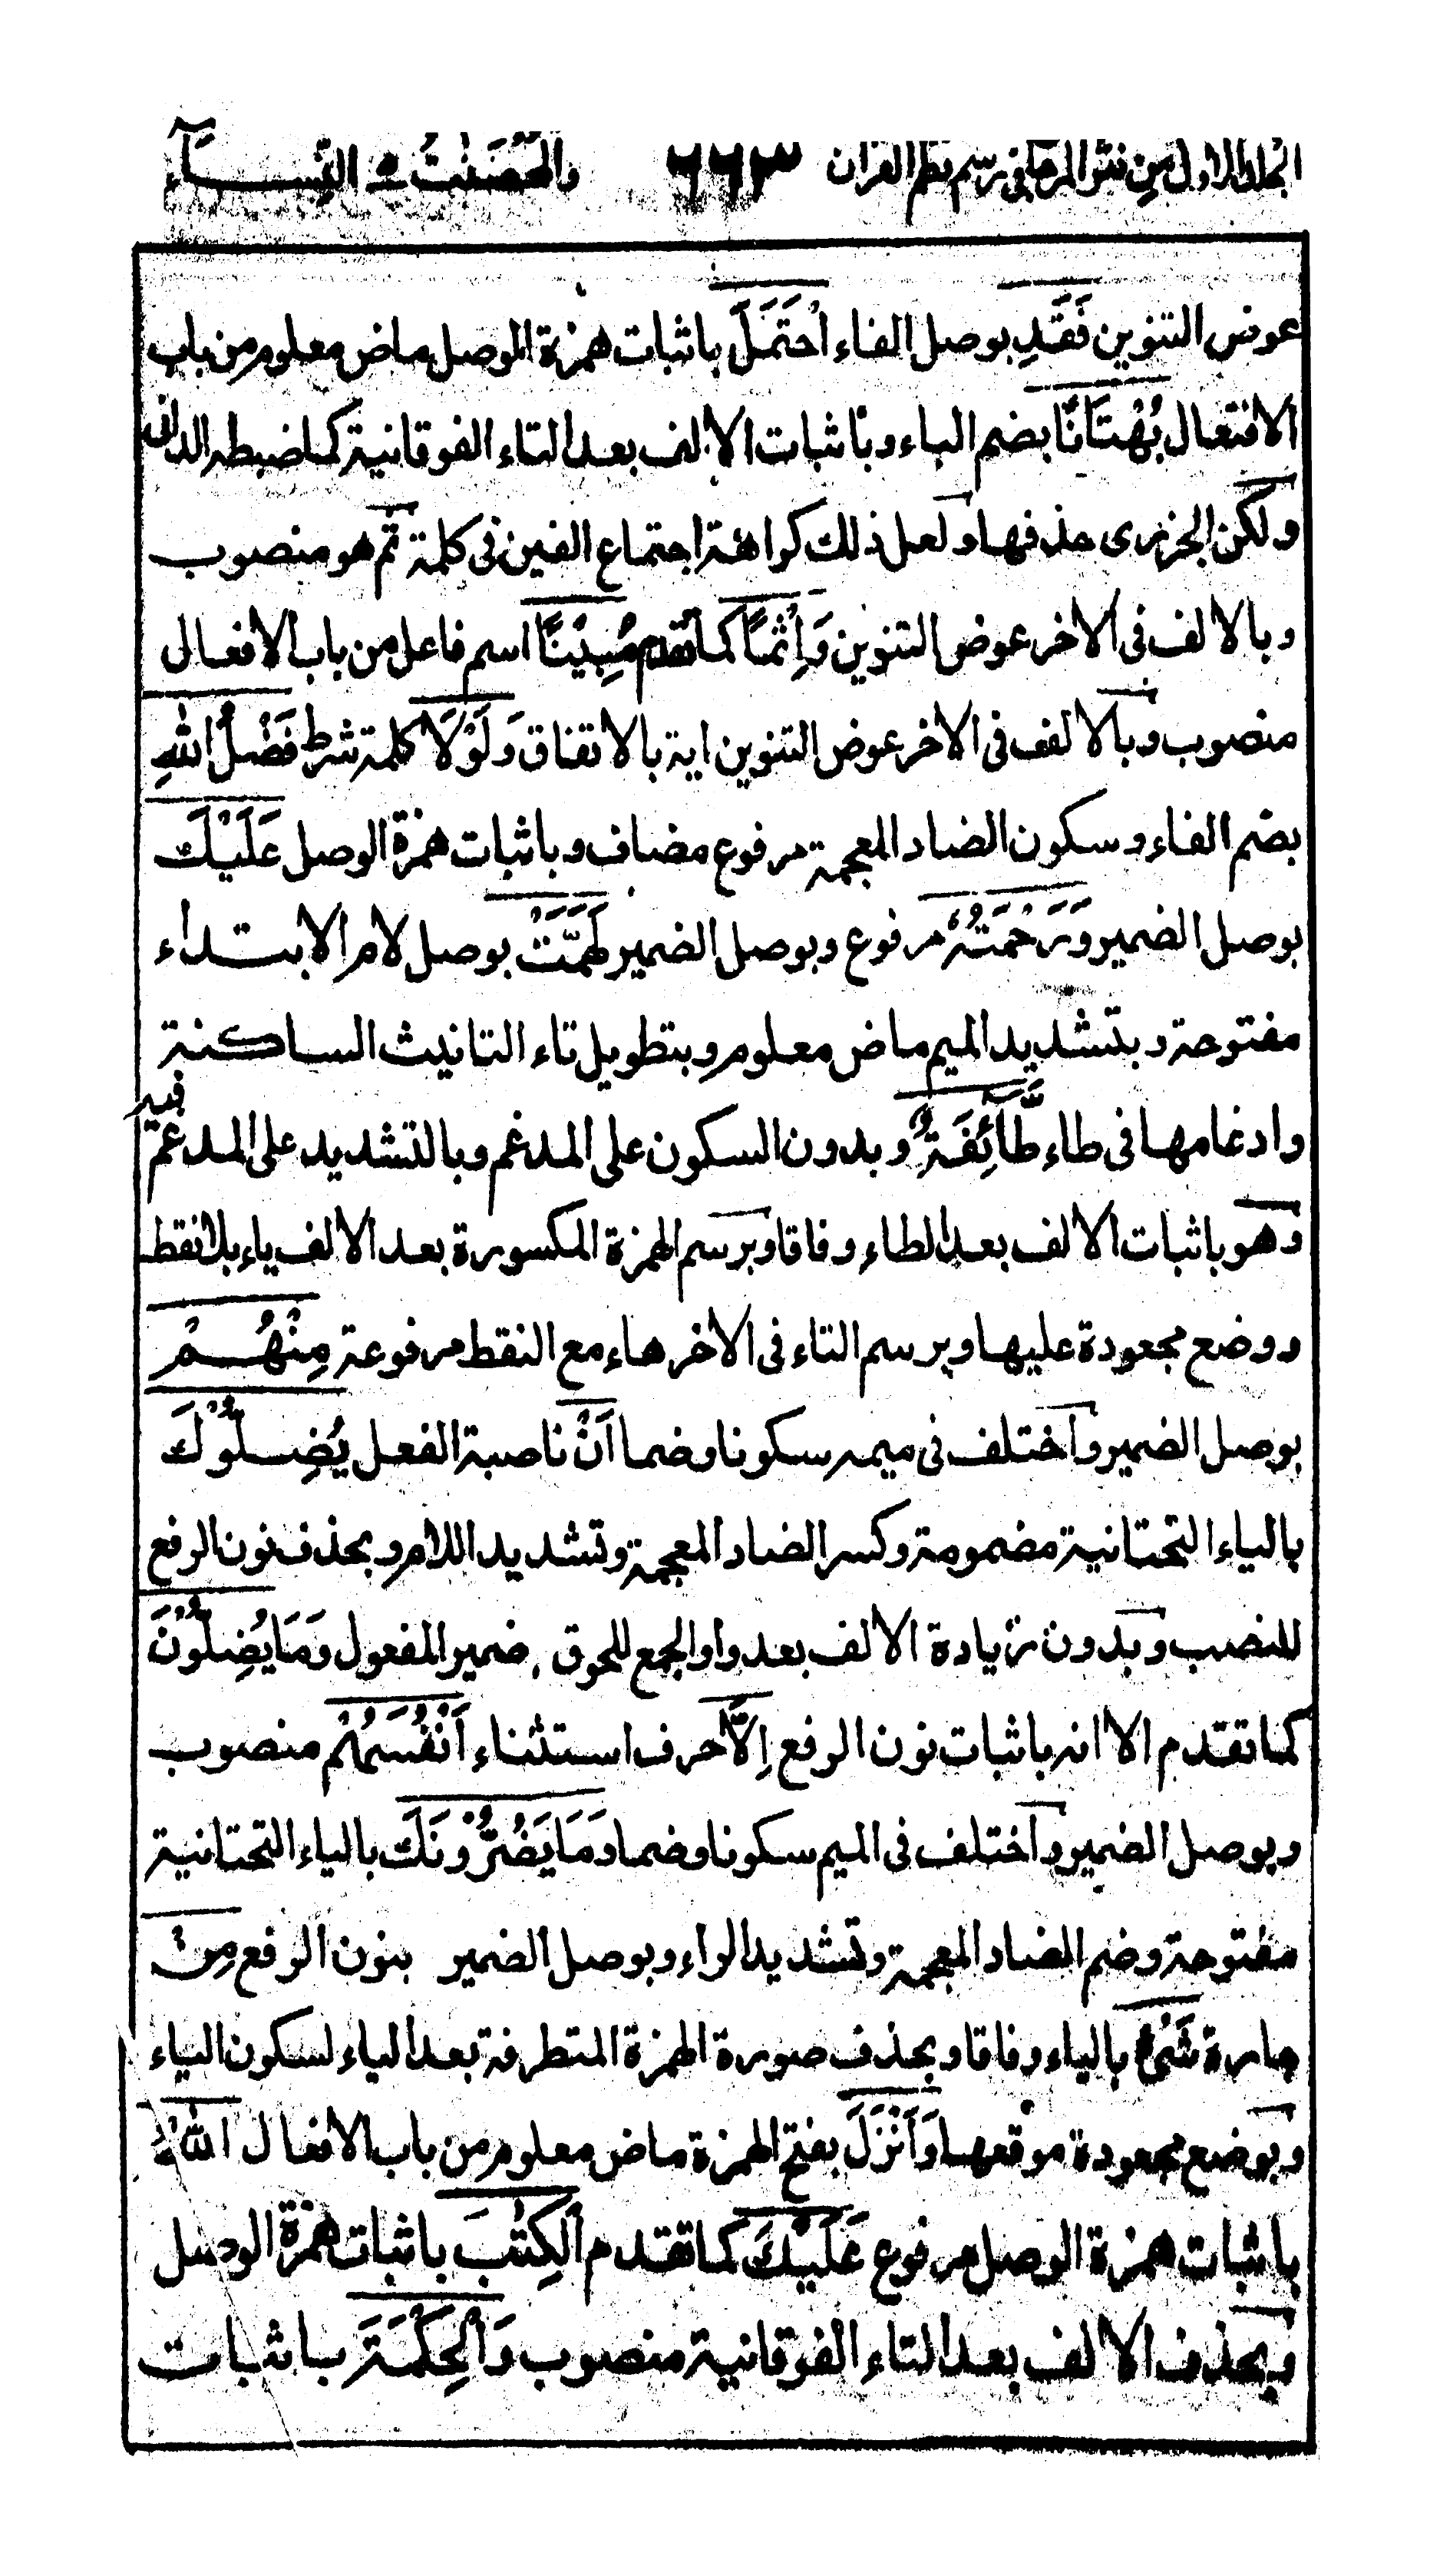 الجلد الاول من نثر المرجان في رسم نظم القران ٦٦٣ والمحصنت ٥ النساء
عوض التنوين فَقَدِ بوصل الفاء احْتَمَلَ باثبات همزة الوصل ماض معلوم من باب
الافتعال بُهْتَانًا بضم الباء وباثبات الالف بعد التاء الفوقانية كما ضبطه الدانى
ولكن الجزرى حذفها ولعل ذلك كراهة اجتماع الفين فى كلمة ثم هو منصوب
وبالالف فى الاخر عوض التنوين وَاِثْمًا كما تقدم مُبِيْنًا اسم فاعل من باب الافعال
منصوب وبالالف فى الاخر عوض التنوين اية بالاتفاق وَلَوْلَا كلمة شرط فَضْلُ اللهِ
بضم الفاء وسكون الضاد المعجمة مرفوع مضاف وباثبات همزة الوصل عَلَيْكَ
بوصل الضمير وَرَحْمَتُهٗ مرفوع وبوصل الضمير لَهَمَّتْ بوصل لام الابتداء
مفتوحة وبتشديد الميم ماض معلوم وبتطويل تاء التانيث الساكنة
وادغامها فى طاء طَّآئِفَةٌ وبدون السكون على المدغم وبالتشديد على المدغم فيه
وهو باثبات الالف بعد الطاء وفاقا وبرسم الهمزة المكسورة بعد الالف ياء بلا نقط
ووضع مجعودة عليها وبرسم التاء فى الاخر هاء مع النقط مرفوعة مِنْهُمْ
بوصل الضمير واختلف فى ميمه سكونا وضما اَنْ ناصبة الفعل يُضِلُّوْكَ
بالياء التحتانية مضمومة وكسر الضاد المعجمة وتشديد اللام وبحذف نون الرفع
للنصب وبدون زيادة الالف بعد واو الجمع للحوق ضمير المفعول وَمَا يُضِلُّوْنَ
كما تقدم الا انه باثبات نون الرفع اِلَّا حرف استثناء اَنْفُسَهُمْ منصوب
وبوصل الضمير واختلف فى الميم سكونا وضما وَمَا يَضُرُّوْنَكَ بالياء التحتانية
مفتوحة وضم الضاد المعجمة وتشديد الراء وبوصل الضمير بنون الرفع مِنْ
جارة شَىْءٍ بالياء وفاقا وبحذف صورة الهمزة المتطرفة بعد الياء لسكون الياء
وبوضع مجعودة موقعها وَاَنْزَلَ بفتح الهمزة ماض معلوم من باب الافعال اللهُ
باثبات همزة الوصل مرفوع عَلَيْكَ كما تقدم الْكِتٰبَ باثبات همزة الوصل
وبحذف الالف بعد التاء الفوقانية منصوب وَالْحِكْمَةَ باثبات